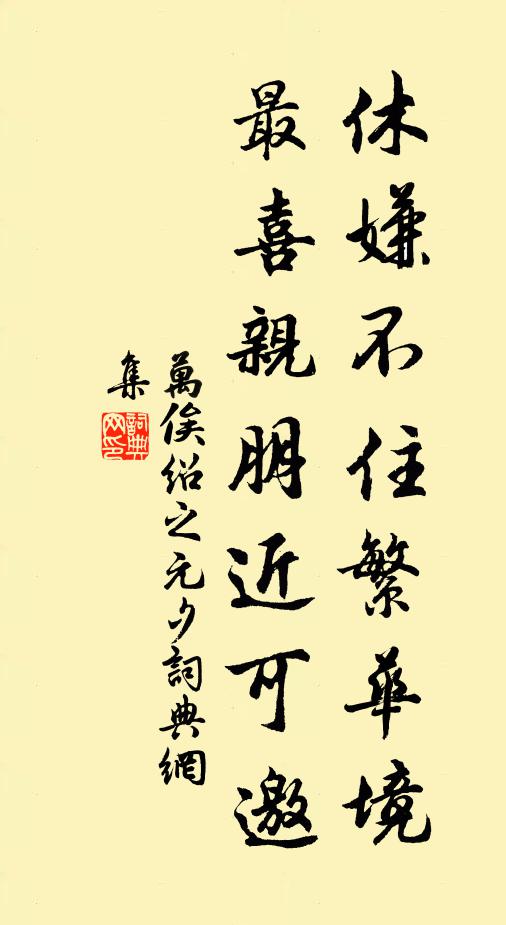 休嫌不住繁華境
最喜親朋近可邀
萬俟紹之元夕詞典網
集
詞典
网印